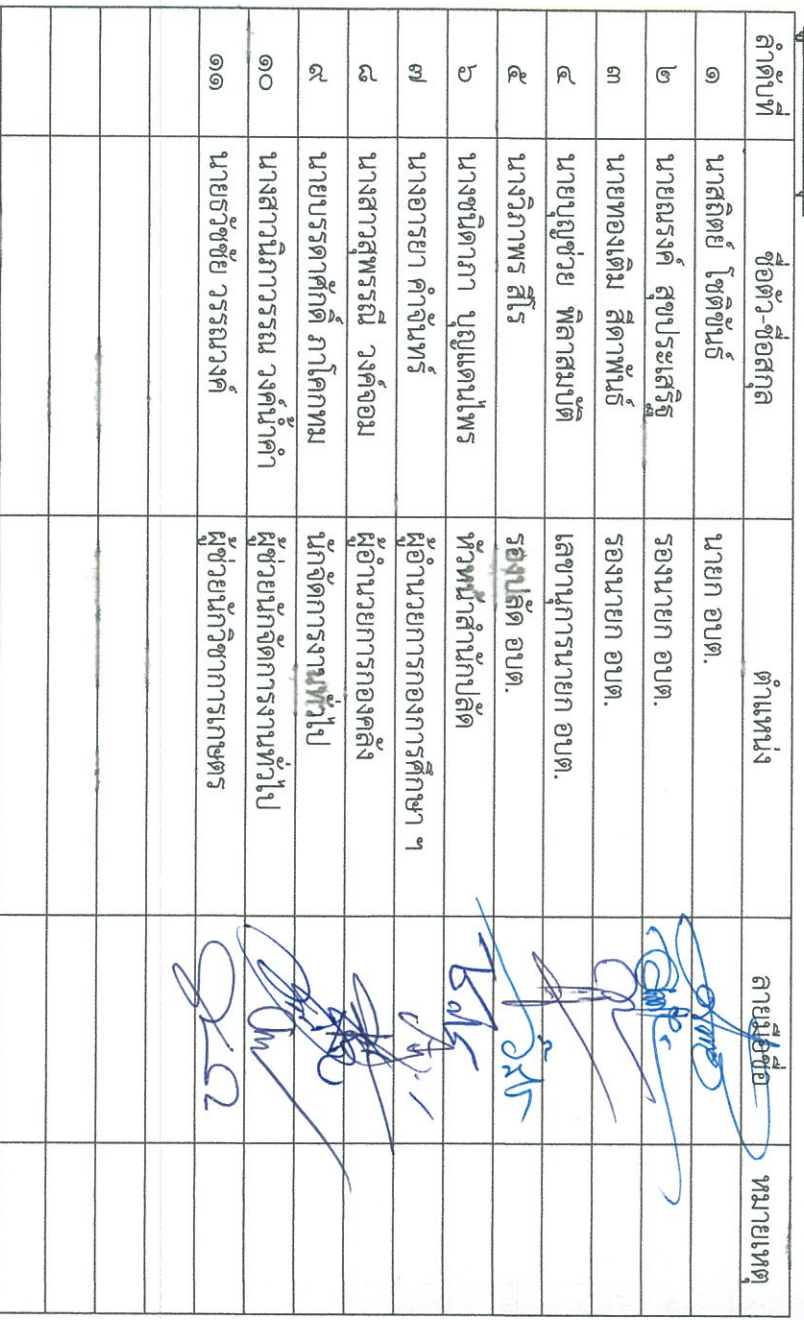 ลำดับที่ ชื่อตัว-ชื่อสกุล ตำแหน่ง ลายมือชื่อ หมายเหตุ
๑ นาสถิตย์ โชติขันธ์ นายก อบต.
๒ นายณรงค์ สุขประเสริฐ รองนายก อบต.
๓ นายทองเติม สีดาพันธ์ รองนายก อบต.
๔ นายบุญช่วย พิลาสมบัติ เลขานุการนายก อบต.
๕ นางวิภาพร สีโร รองปลัด อบต.
๖ นางชนิดาภา บุญแดนไพร หัวหน้าสำนักปลัด
๗ นางอารยา คำจันทร์ ผู้อำนวยการกองการศึกษา ฯ
๘ นางสาวสุพรรณี วงค์จอม ผู้อำนวยการกองคลัง
๙ นายบรรดาศักดิ์ ภาโคกทม นักจัดการงานทั่วไป
๑๐ นางสาวนิภาวรรณ วงค์น้ำคำ ผู้ช่วยนักจัดการงานทั่วไป
๑๑ นายธวัชชัย วรรณวงค์ ผู้ช่วยนักวิชาการเกษตร